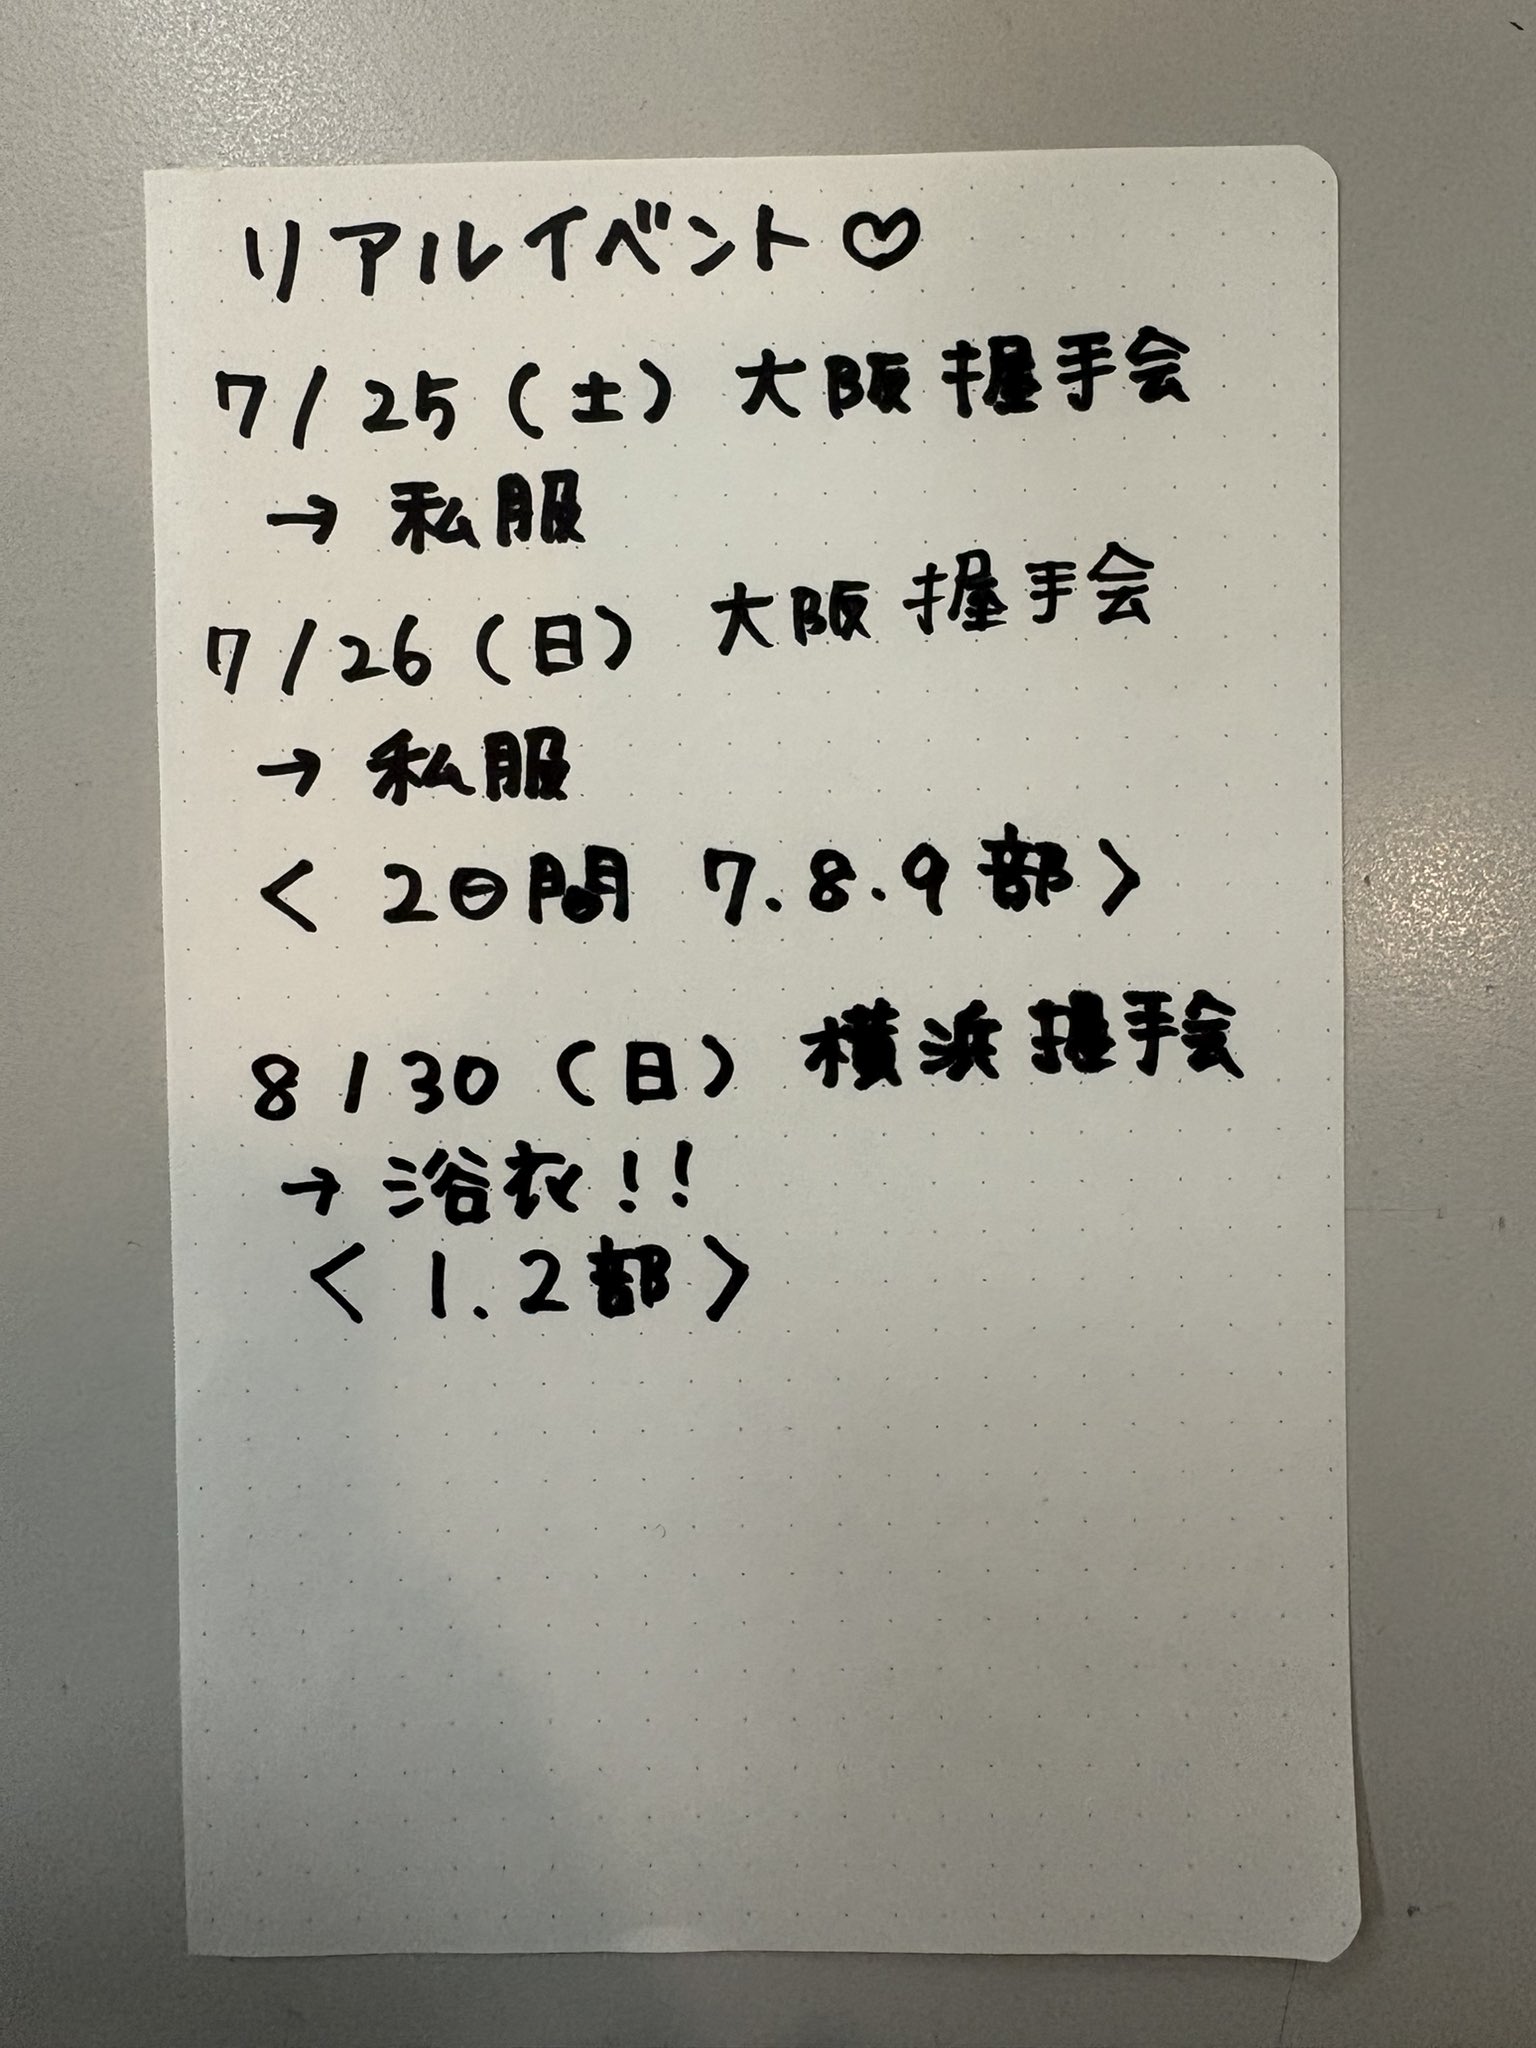 リアルイベント♡
7/25(土) 大阪握手会
→ 私服
7/26(日) 大阪握手会
→ 私服
< 2日間 7.8.9部 >
8/30(日) 横浜握手会
→ 浴衣!!
< 1.2部 >